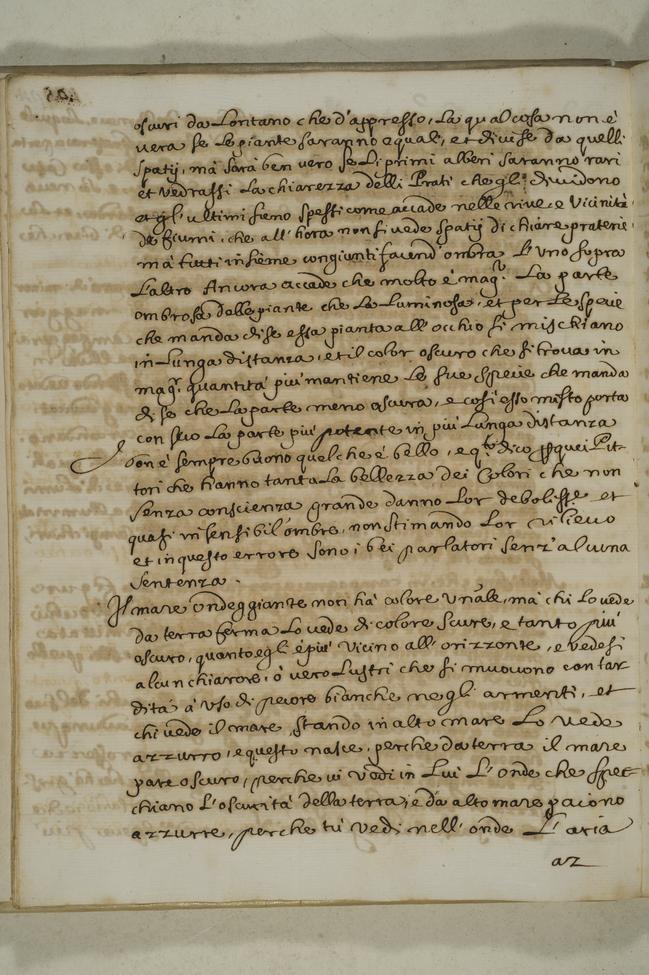 oscuri da Lontano che d'appresso, La qual cosa non è
vera se Le piante saranno equali, et divise da quelli
spatij, mà sarà ben vero se Li primi alberi saranno rari
et vedrassi La chiarezza delli Prati che gli dividono
et gl'ultimi sieno spessi come accade nelle rive e Vicinità
de fiumi, che all'hora non si vede spatij di chiare praterie
mà tutti insieme congiunti facend'ombra L'uno sopra
L'altro Ancora accade che molto è magr. La parte
ombrosa delle piante che La Luminosa, et per Le spetie
che manda di se essa pianta all'occhio si mischiano
in Lunga distanza, et il color oscuro che si trova in
magr. quantità più mantiene Le sue spetie che manda
di se che La parte meno oscura, e così esso misto porta
con seco La parte più potente in più Lunga distanza
Non è sempre buono quel che è bello, e qto dico p quei Pit-
tori che hanno tanta La bellezza dei Colori che non
senza conscienza grande danno Lor debolisse et
quasi insensibil'ombre, non stimando Lor rilievo
et in questo errore sono i bei parlatori senz'alcuna
sentenza.
Il mare ondeggiante non hà colore un'ale, mà chi Lo vede
da terra ferma Lo vede di colore scuro, e tanto più
oscuro, quanto egli è più vicino all'orizzonte, e vedesi
alcun chiarore, ò vero Lustri che si muovono con tar
dità à uso di pecore bianche negli armenti, et
chi vede il mare stando in alto mare Lo vede
azzurro, e questo nasce, perche da terra il mare
pare oscuro, perche vi vedi in Lui L'onde che spec
chiano L'oscurità della terra, e da alto mare paiono
azzurre, perche tù vedi nell'onde L'aria
az